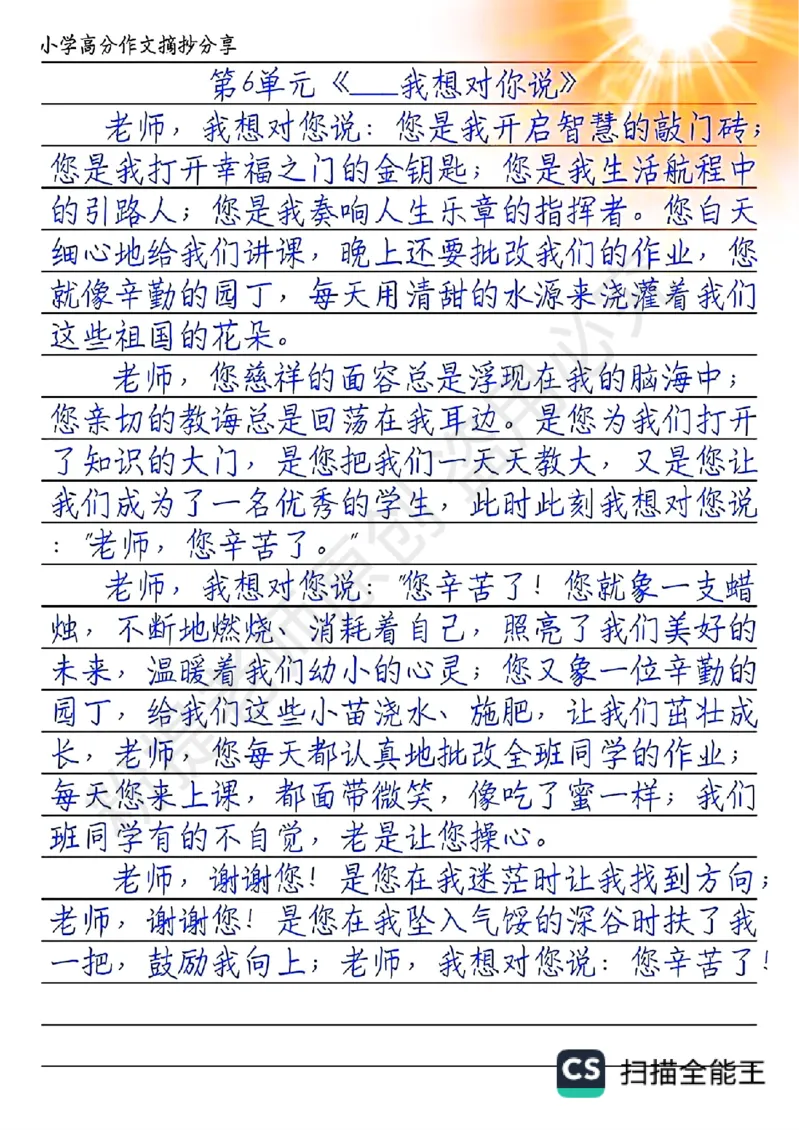 小学高分作文摘抄分享
第6单元《___我想对你说》
老师，我想对您说：您是我开启智慧的敲门砖；
您是我打开幸福之门的金钥匙；您是我生活航程中
的引路人；您是我奏响人生乐章的指挥者。您白天
细心地给我们讲课，晚上还要批改我们的作业，您
就像辛勤的园丁，每天用清甜的水源来浇灌着我们
这些祖国的花朵。
老师，您慈祥的面容总是浮现在我的脑海中；
您亲切的教诲总是回荡在我耳边。是您为我们打开
了知识的大门，是您把我们一天天教大，又是您让
我们成为了一名优秀的学生，此时此刻我想对您说
："老师，您辛苦了。"
老师，我想对您说："您辛苦了！您就象一支蜡
烛，不断地燃烧、消耗着自己，照亮了我们美好的
未来，温暖着我们幼小的心灵；您又象一位辛勤的
园丁，给我们这些小苗浇水、施肥，让我们茁壮成
长，老师，您每天都认真地批改全班同学的作业；
每天您来上课，都面带微笑，像吃了蜜一样；我们
班同学有的不自觉，老是让您操心。
老师，谢谢您！是您在我迷茫时让我找到方向；
老师，谢谢您！是您在我坠入气馁的深谷时扶了我
一把，鼓励我向上；老师，我想对您说：您辛苦了！
CS 扫描全能王